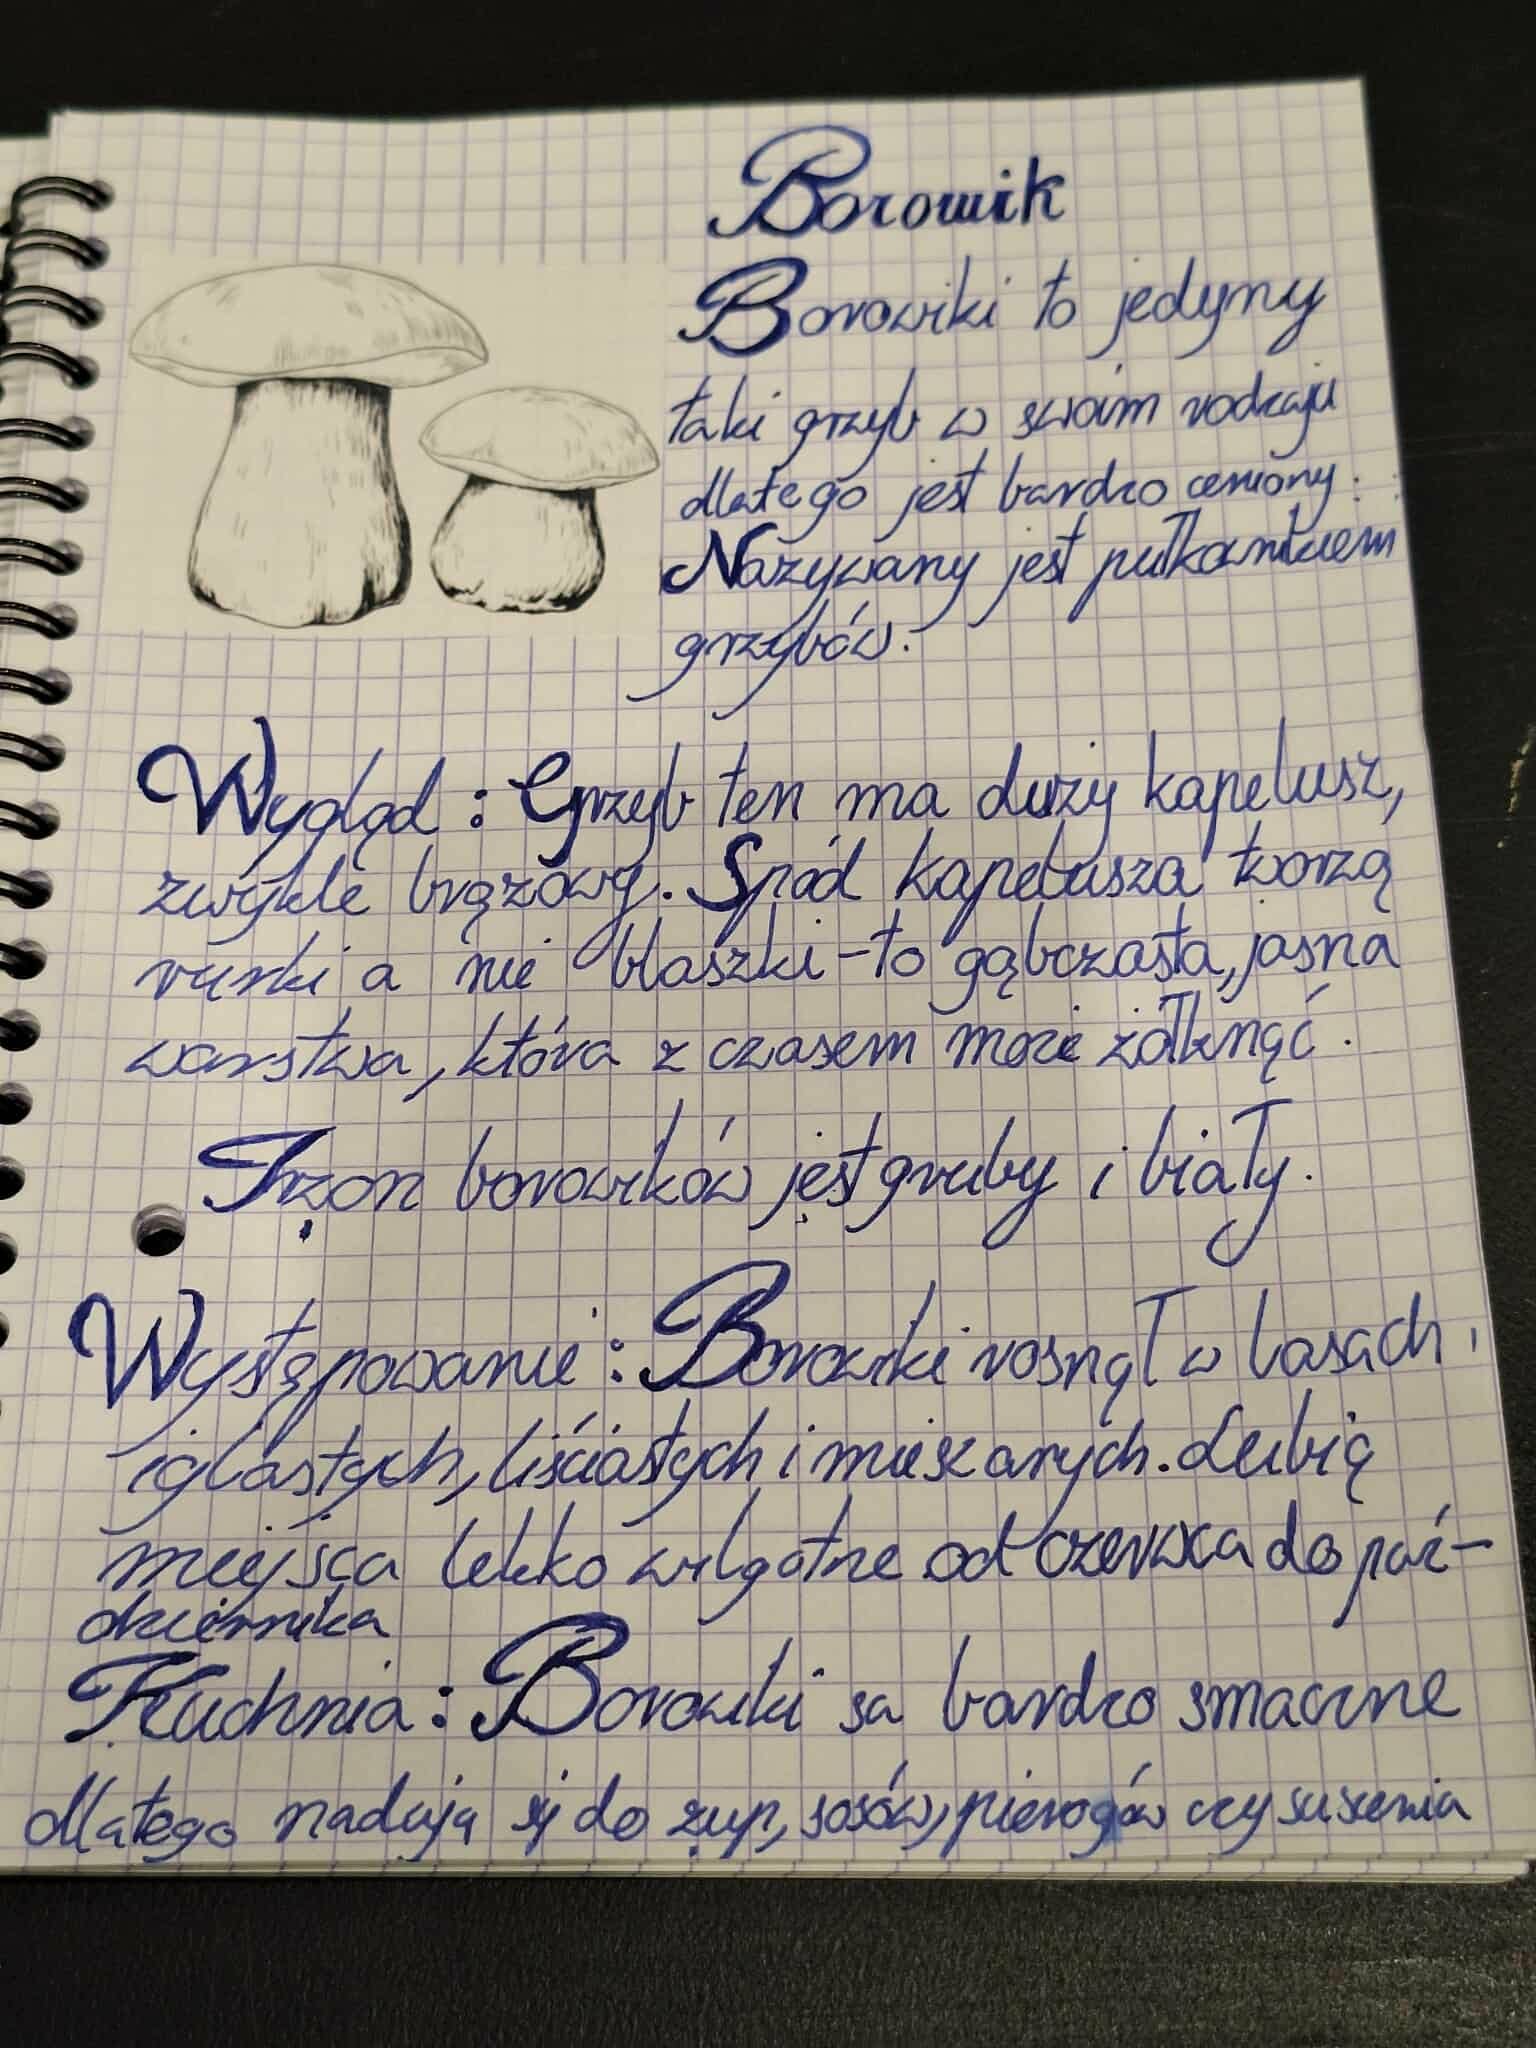 Borowik
Borowiki to jedyny
taki grzyb w swoim rodzaju
dlatego jest bardzo ceniony.
Nazywany jest pułkownikiem
grzybów.
Wygląd: Grzyb ten ma duży kapelusz,
zwykle brązowy. Spód kapelusza tworzą
rurki a nie blaszki - to gąbczasta, jasna
warstwa, która z czasem może żółknąć.
Trzon borowików jest gruby i biały.
Występowanie: Borowiki rosną w lasach
iglastych, liściastych i mieszanych. Lubią
miejsca lekko wilgotne od czerwca do paź-
dziernika
Kuchnia: Borowiki sa bardzo smaczne
dlatego nadają się do zup, sosów, pierogów czy suszenia